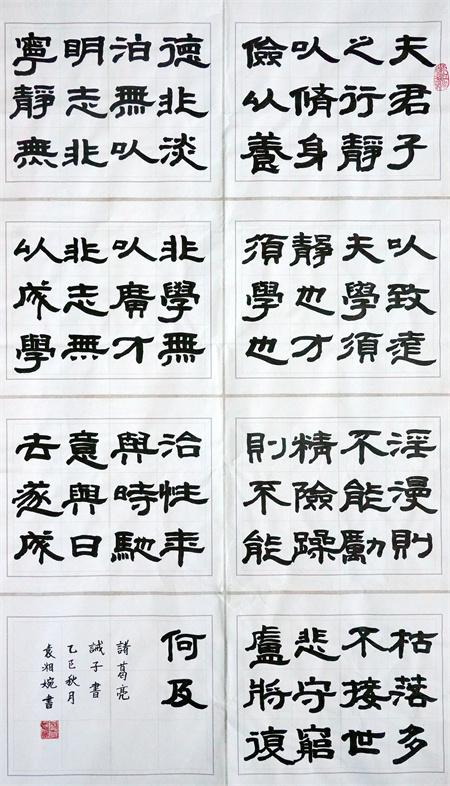 夫君子
之行靜
以脩身
儉以養
德非淡
泊無以
明志非
寧靜無
以致遠
夫學須
靜也才
須學也
非學無
以廣才
非志無
以成學
淫漫則
不能勵
精險躁
則不能
治性年
與時馳
意與日
去遂成
枯落多
不接世
悲守窮
盧將復
何及
諸葛亮
誡子書
乙巳秋月
袁湘婉書